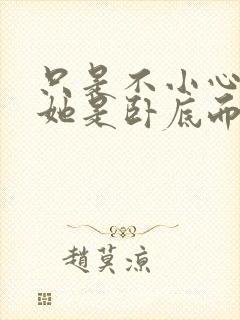 只是不小心
她是卧底而
趙莫涼